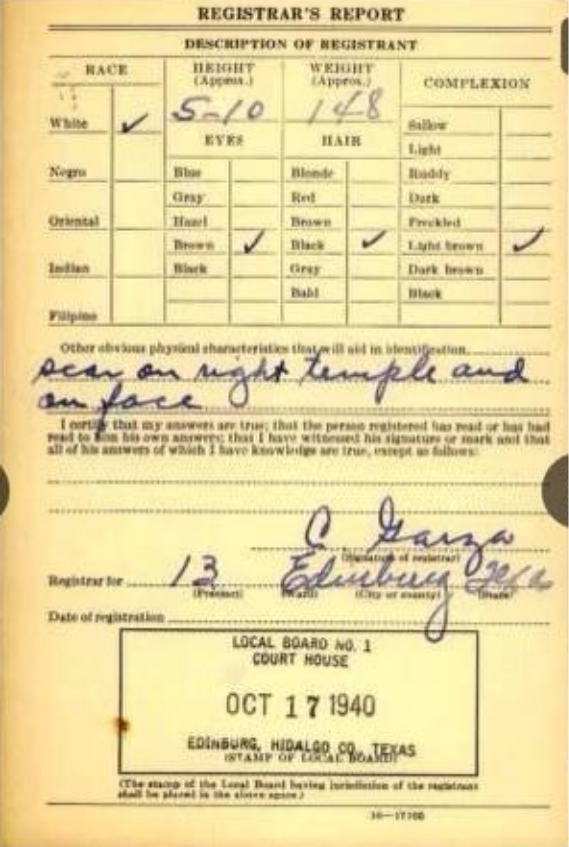 REGISTRAR'S REPORT
DESCRIPTION OF REGISTRANT
RACE
HEIGHT
(Approx.)
WEIGHT
(Approx.)
COMPLEXION
5-10
148
White ✓
EYES
HAIR
Sallow
Light
Negro
Blue
Blonde
Ruddy
Gray
Red
Dark
Oriental
Hazel
Brown
Freckled
Brown ✓
Black ✓
Light brown ✓
Indian
Black
Gray
Dark brown
Bald
Black
Filipino
Other obvious physical characteristics that will aid in identification
scar on right temple and
on face
I certify that my answers are true; that the person registered has read or has had
read to him his own answers; that I have witnessed his signature or mark and that
all of his answers of which I have knowledge are true, except as follows:
C Garza
(Signature of registrar)
Registrar for 13 Edinburg Texas
(Precinct) (Ward) (City or county) (State)
Date of registration
LOCAL BOARD NO. 1
COURT HOUSE
OCT 17 1940
EDINBURG, HIDALGO CO., TEXAS
(STAMP OF LOCAL BOARD)
(The stamp of the Local Board having jurisdiction of the registrant
shall be placed in the above space.)